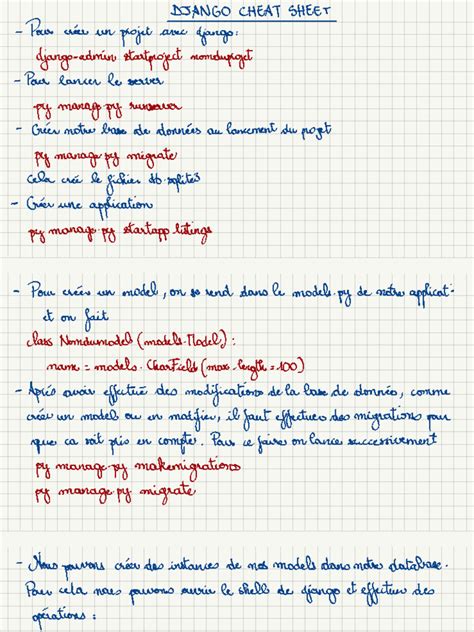 DJANGO CHEAT SHEET
- Pour créer un projet avec django:
django-admin startproject nomduprojet
- Pour lancer le server
py manage.py runserver
- Créer notre base de données au lancement du projet
py manage.py migrate
Cela crée le fichier db.sqlite3
- Créer une application
py manage.py startapp listings
- Pour créer un model, on se rend dans le models.py de notre applicat-
et on fait
class Nomdumodel (models.Model) :
name = models.CharField (max_length = 100)
- Après avoir effectué des modifications de la base de donnée, comme
créer un models ou en modifier, il faut effectuer des migrations pour
que ca soit pris en compte. Pour ce faire on lance successivement
py manage.py makemigrations
py manage.py migrate
- Nous pouvons créer des instances de nos models dans notre database.
Pour cela nous pouvons ouvrir le shell de django et effectuer des
opérations :